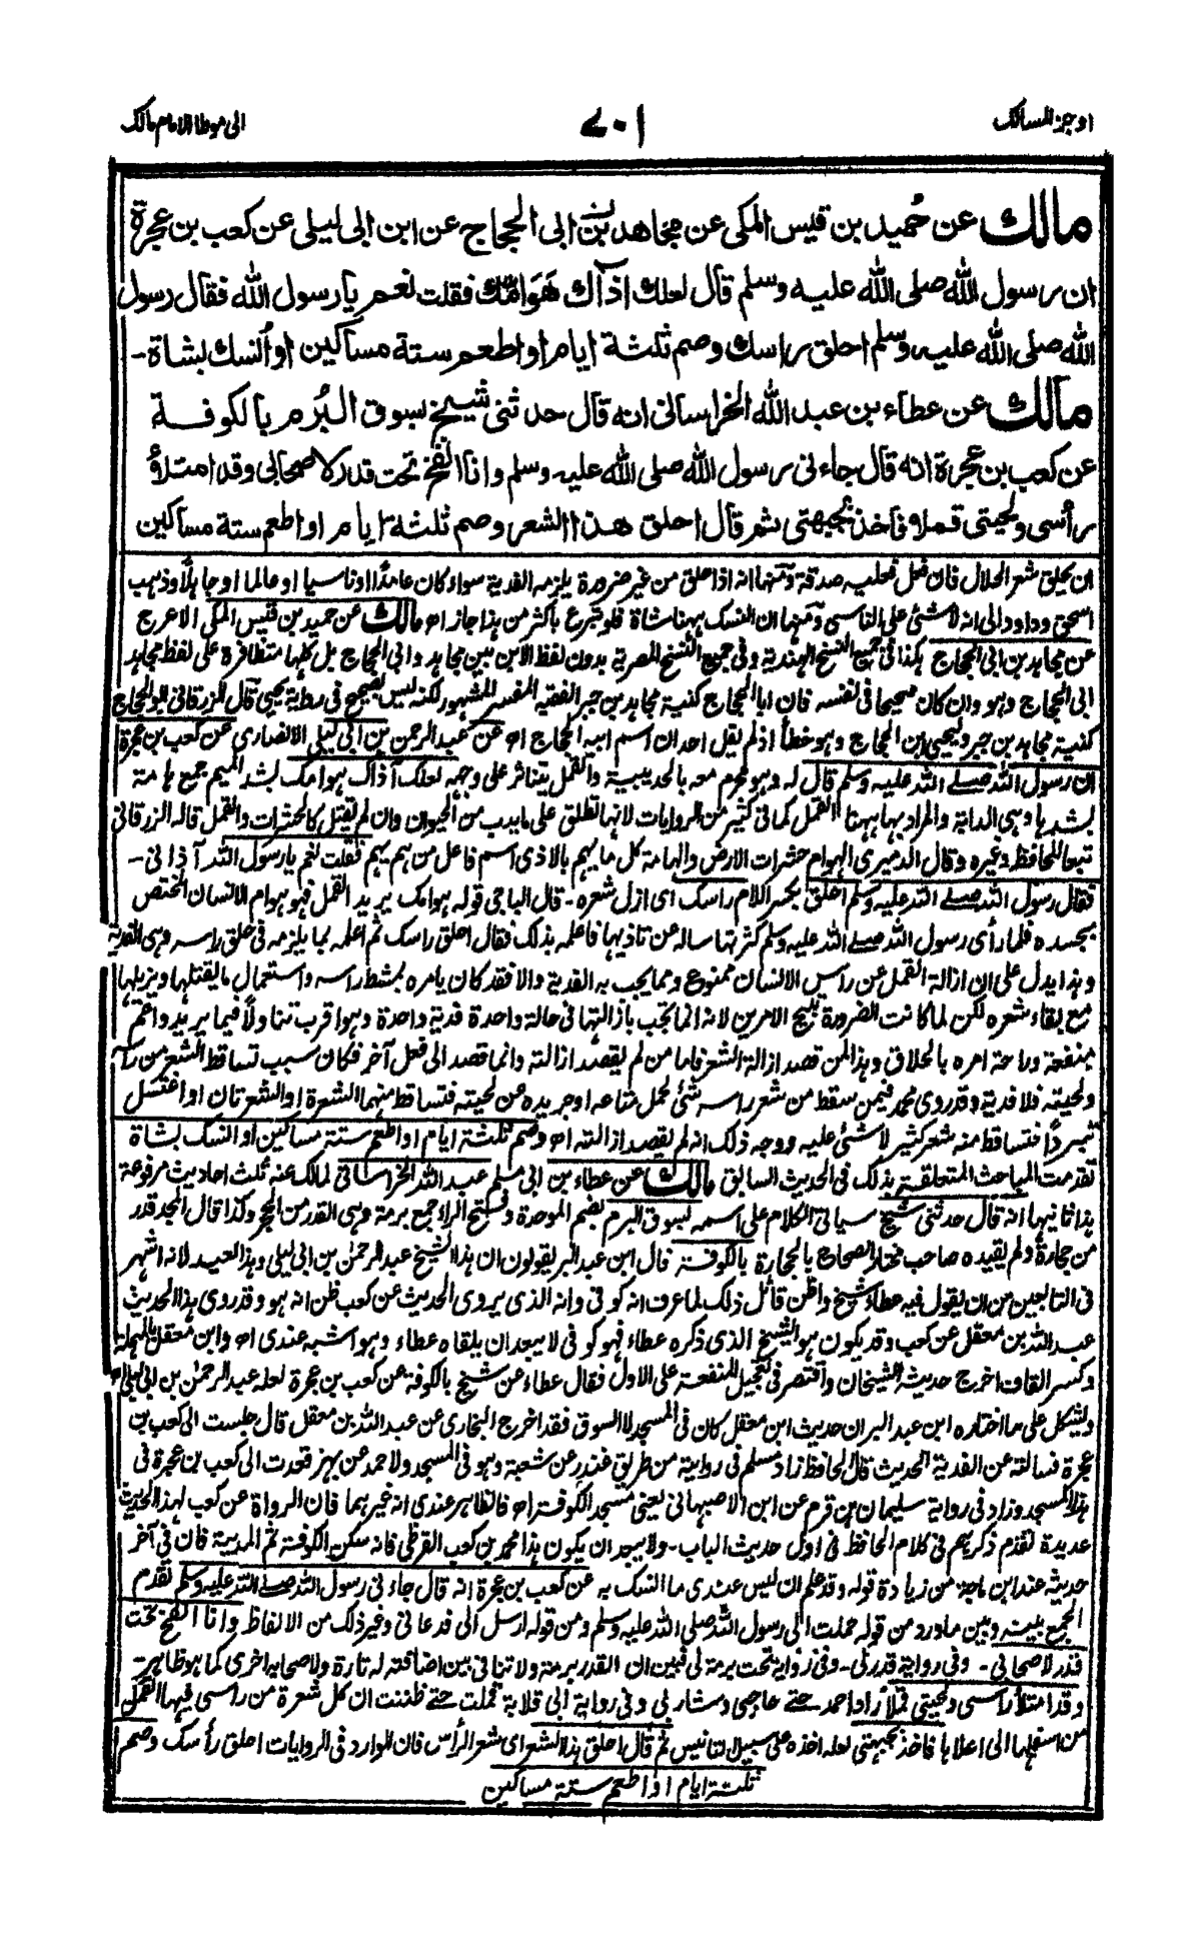 اوجز المسالك
٧٠١
الى موطا الامام مالك
مالك عن حُميد بن قيس المكى عن مجاهد بن ابى الحجاج عن ابن ابى ليلى عن كعب بن عجرة
ان رسول الله صلى الله عليه وسلم قال لعلك اذآك هَوَامّك فقلت نعم يا رسول الله فقال رسول
الله صلى الله عليه وسلم احلق راسك وصم ثلثة ايام او اطعم ستة مساكين او اُنسك بشاة-
مالك عن عطاء بن عبد الله الخراسانى انه قال حدثنى شيخ بسوق البُرم بالكوفة
عن كعب بن عجرة انه قال جاءنى رسول الله صلى الله عليه وسلم وانا انفخ تحت قدر لاصحابى وقد امتلأ
رأسى ولحيتى قملا فاخذ بجبهتى ثم قال احلق هذا الشعر وصم ثلثة ايام او اطعم ستة مساكين
ان يحلق شعر الحلال فان فعل فعليه صدقة ومنها انه اذا حلق من غير ضرورة يلزمه الفدية سواء كان عامدًا او ناسيا او عالما او جاهلًا وذهب
اسحق وداود الى انه لا شئ على الناسى ومنها ان النسك ههنا شاة فلو تبرع باكثر من هذا جاز اھ مالك عن حميد بن قيس المكى الاعرج
عن مجاهد بن ابى الحجاج هكذا فى جميع النسخ الهندية وفى جميع النسخ المصرية بدون لفظ الابن بين مجاهد وابى الحجاج بل كلها متظافرة على لفظ مجاهد
ابى الحجاج وهو وان كان صحيحا فى نفسه فان ابا الحجاج كنية مجاهد بن جبر الفقيه المفسر المشهور لكنه ليس بصحيح فى رواية يحيى قال الزرقانى ابو الحجاج
كنية مجاهد بن جبر وليحيى ابن الحجاج وهو خطأ اذ لم يقل احد ان اسم ابيه الحجاج اھ عن عبد الرحمن بن ابى ليلى الانصارى عن كعب بن عجرة
ان رسول الله صلے الله عليه وسلم قال له وهو محرم معه بالحديبية والقمل يتناثر على وجهه لعلك آذاك هوامك بشد الميم جمع هامة
بشدها وهى الدابة والمراد بها ههنا القمل كما فى كثير من الروايات لانها تطلق على ما يدب من الحيوان وان لم يقتل كالحشرات والقمل قاله الزرقانى
تبعا للحافظ وغيره وقال الدميرى الهوام حشرات الارض والهامة كل ما يهم بالاذى اسم فاعل من هم يهم فقلت نعم يا رسول الله آذانى-
فقال رسول الله صلے الله عليه وسلم احلق بكسر اللام راسك اى ازل شعره- قال الباجى قوله هوامك يريد القمل فهو هوام الانسان المختص
بجسده فلما رأى رسول الله صلے الله عليه وسلم كثرتها ساله عن تاذيها فاعلمه بذلك فقال احلق راسك ثم اعلمه بما يلزمه فى حلق راسه وهى الفدية
وهذا يدل على ان ازالة القمل عن راس الانسان ممنوع ومما يجب به الفدية والا فقد كان يامره بمشط راسه واستعمال ما يقتلها ويزيلها
مع بقاء شعره لكن لما كانت الضرورة تبيح الامرين لانه انما تجب بازالتها فى حالة واحدة فدية واحدة وهو اقرب تناولًا فيما يريد واعم
منفعة وراحة امره بالحلاق وهذا لمن قصد ازالة الشعر فاما من لم يقصد ازالته وانما قصد الى فعل آخر فكان سبب تساقط الشعر من راسه
ولحيته فلا فدية وقد روى محمد فيمن سقط من شعر راسه شئ لحمل متاعه او جر يده عن لحيته فتساقط منهما الشعرة او الشعرتان او اغتسل
تبردًا فتساقط منه شعر كثير لا شئ عليه ووجه ذلك انه لم يقصد ازالته اھ وصم ثلثة ايام او اطعم ستة مساكين او انسك بشاة
تقدمت المباحث المتعلقة بذلك فى الحديث السابق مالك عن عطاء بن ابى مسلم عبد الله الخراسانى لمالك عنه ثلث احاديث مرفوعة
هذا ثانيها انه قال حدثنى شيخ سياتى الكلام على اسمه بسوق البرم بضم الموحدة وفتح الراء جمع برمة وهى القدر من الحجر وكذا قال المجد قدر
من حجارة ولم يقيده صاحب مختار الصحاح بالحجارة بالكوفة قال ابن عبد البر يقولون ان هذا الشيخ عبد الرحمن بن ابى ليلى وهذا العبيد لانه اشهر
فى التابعين من ان يقول فيه عطاء شيخ واظن قائل ذلك لما عرف انه كوفى وانه الذى يروى الحديث عن كعب ظن انه هو وقد روى هذا الحديث
عبد الله بن معقل عن كعب وقد يكون هو الشيخ الذى ذكره عطاء فهو كوفى لا يبعد ان يلقاه عطاء وهو اشبه عندى اھ وابن معقل بالمهملة
وكسر القاف اخرج حديثه الشيخان واقتصر فى تعجيل المنفعة على الاول فقال عطاء عن شيخ بالكوفة عن كعب بن عجرة لعله عبد الرحمن بن ابى ليلى اھ
ويشكل على ما اختاره ابن عبد البر ان حديث ابن معقل كان فى المسجد لا السوق فقد اخرج البخارى عن عبد الله بن معقل قال جلست الى كعب بن
عجرة فسالته عن الفدية الحديث قال الحافظ زاد مسلم فى رواية من طريق غندر عن شعبة وهو فى المسجد ولاحمد عن بهز قعدت الى كعب بن عجرة فى
هذا المسجد وزاد فى رواية سليمان بن قرم عن ابن الاصبهانى يعنى مسجد الكوفة اھ فالظاهر عندى انه غيرهما فان الرواة عن كعب لهذا الحديث
عديدة تقدم ذكرهم فى كلام الحافظ فى اول حديث الباب- ولا يبعد ان يكون هذا محمد بن كعب القرظى فانه سكن الكوفة ثم المدينة فان فى آخر
حديثه عند ابن ماجة من زيادة قوله وقد علم ان ليس عندى ما انسك به عن كعب بن عجرة انه قال جاءنى رسول الله صلے الله عليه وسلم تقدم
الجمع بينه وبين ما ورد من قوله حملت الى رسول الله صلى الله عليه وسلم ومن قوله ارسل الى فدعانى وغير ذلك من الالفاظ وانا انفخ تحت
قدر لاصحابى- وفى رواية قدر لى- وفى رواية تحت برمة لى فبين ان القدر برمة ولا تنافى بين اضافته له تارة ولاصحابه اخرى كما هو ظاهر
وقد امتلأ راسى ولحيتى قملا زاد احمد حتے حاجبى وشاربى وفى رواية ابى قلابة قملت حتے ظننت ان كل شعرة من راسى فيها القمل
من اسفلها الى اعلاها فاخذ بجبهتى لعله اخذه على سبيل التانيس ثم قال احلق هذا الشعر اى شعر الرأس فان الوارد فى الروايات احلق رأسك وصم
ثلثة ايام او اطعم ستة مساكين